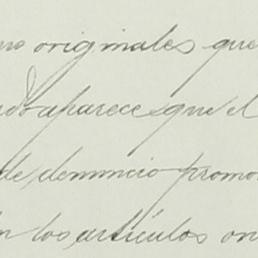 originales que
aparece que el
de denuncio promo
los artículos on